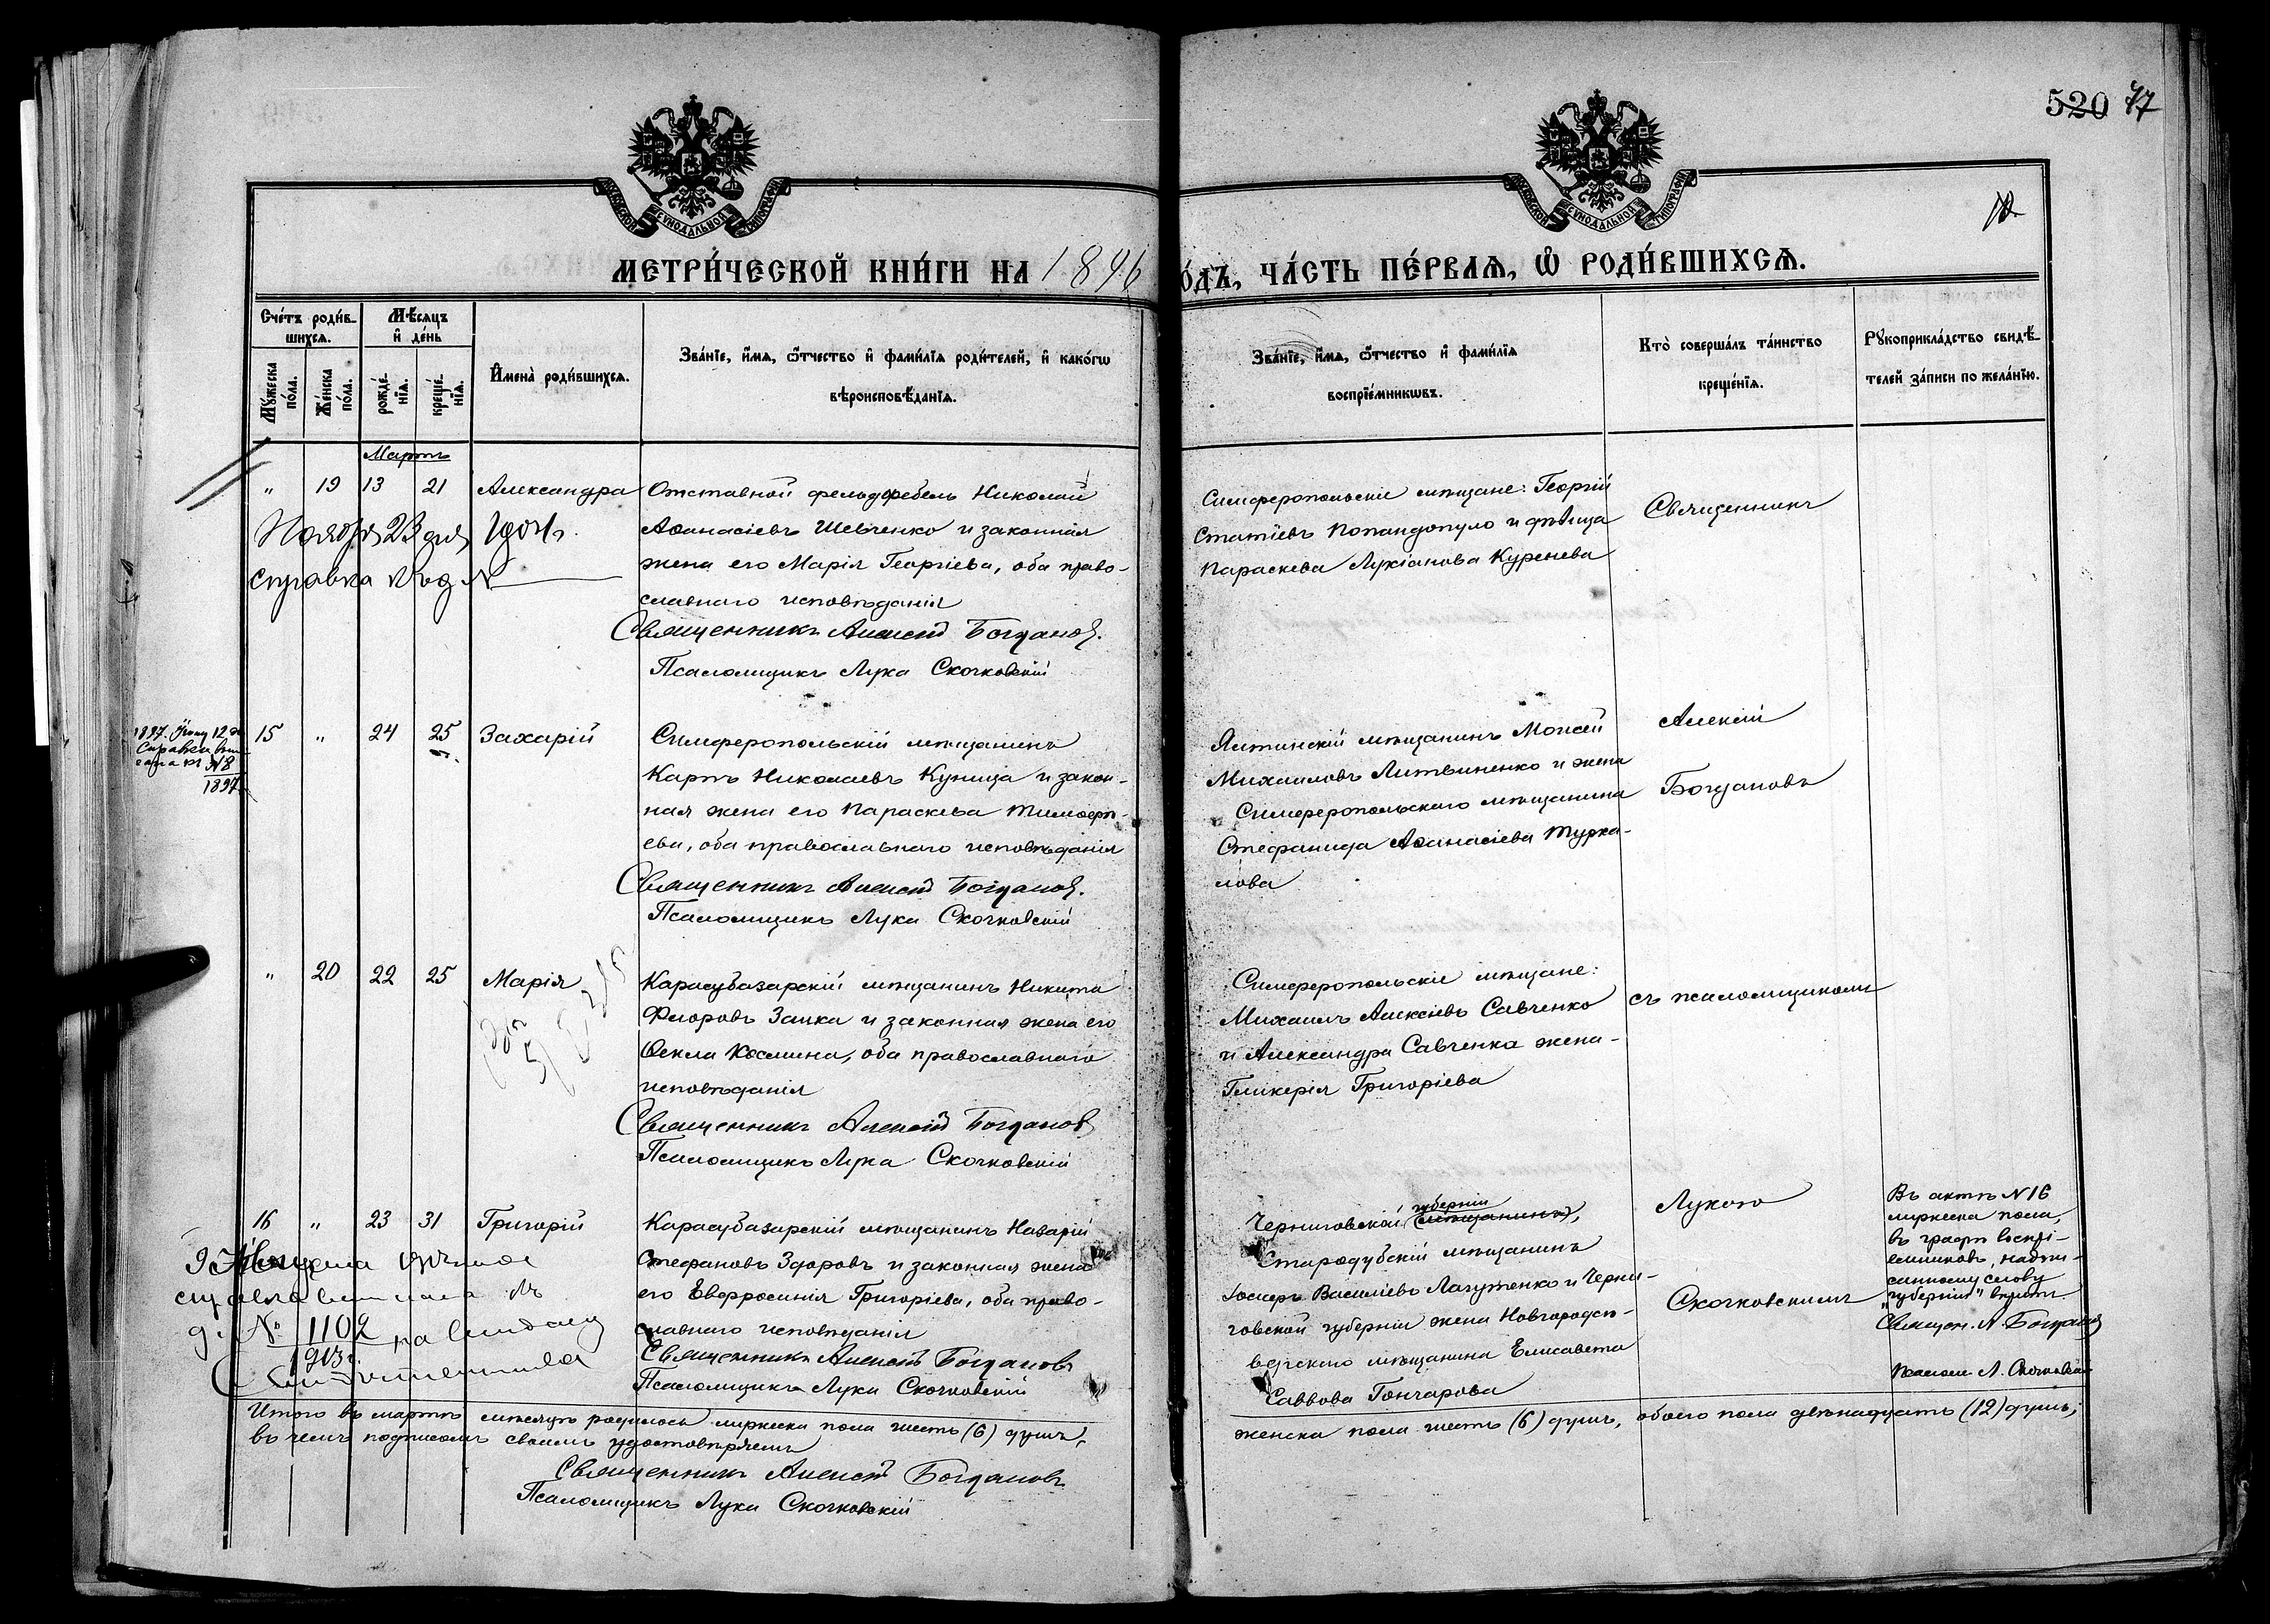 520 47
МОСКОВСКОЙ СѴНОДАЛЬНОЙ ТИПОГРАФІИ
МОСКОВСКОЙ СѴНОДАЛЬНОЙ ТИПОГРАФІИ
МЕТРИ́ЧЕСКОЙ КНИ́ГИ НА 1896
О́ДЪ, ЧА́СТЬ ПЕ́РВАѦ, Ѽ РОДИ́ВШИХСѦ.
Сче́тъ роди́в-
шихсѧ.
Мѣ́сѧцъ
и҆ де́нь
Мꙋ́жеска
по́ла.
Же́нска
по́ла.
рожде́-
нїѧ.
креще́-
нїѧ.
И҆мена̀ роди́вшихсѧ.
Зва́нїе, и҆́мѧ, ѻ҆́тчество и҆ фами́лїѧ роди́телей, и҆ како́гѡ
вѣроисповѣ́данїѧ.
Зва́нїе, и҆́мѧ, ѻ҆́тчество и҆ фами́лїѧ
воспрїе́мникѡвъ.
Кто̀ соверша́лъ та́инство
креще́нїѧ.
Рꙋкоприкла́дство свидѣ́-
телей за́писи по жела́нїю.
Мартъ
" 19 13 21 Александра
Отставной фельдфебель Николай
Аѳанасіевъ Шевченко и законная
жена его Марія Георгіева, оба право-
славнаго исповѣданія
Священникъ Алексій Богданов.
Псаломщикъ Лука Скочковскій
Ноября 23 дня 1904 г.
справка выд. №
Симферопольскіе мѣщане: Георгій
Статіевъ Попандопуло и дѣвица
Параскева Лукіанова Куренева
Священникъ
1897. 12
Справка
№ 8
1897
15 " 24 25 Захарій
Симферопольскій мѣщанинъ
Карпъ Николаевъ Куница и закон-
ная жена его Параскева Тимоѳе-
ева, оба православнаго исповѣданія
Священникъ Алексій Богданов.
Псаломщикъ Лука Скочковскій
Ялтинскій мѣщанинъ Моисей
Михаиловъ Литвиненко и жена
Симферопольскаго мѣщанина
Стефанида Аѳанасіева Турка-
лова
Алексій
Богдановъ
" 20 22 25 Марія
Карасубазарскій мѣщанинъ Никита
Флоровъ Заика и законная жена его
Ѳекла Космина, оба православнаго
исповѣданія
Священникъ Алексій Богданов
Псаломщикъ Лука Скочковскій
Симферопольскіе мѣщане:
Михаилъ Алексіевъ Савченко
и Александра Савченка жена-
Гликерія Григоріева
съ псаломщикомъ
16 " 23 31 Григорій
Карасубазарскій мѣщанинъ Назарій
Стефановъ Здоровъ и законная жена
его Евфросинія Григоріева, оба право-
славнаго исповѣданія
Священникъ Алексій Богдановъ
Псаломщикъ Лука Скочковскій
справка
№ 1102
1913 г.
губерніи
Черниговской (мѣщанинъ),
Стародубскій мѣщанинъ
Іосифъ Василіевъ Лагутенко и Черни-
говской губерніи жена Новгородсѣ-
верскаго мѣщанина Елисавета
Саввова Гончарова
Лукою
Скочковскимъ
Въ актѣ № 16
мужеска пола,
въ графѣ воспрі-
емниковъ, надпи-
санному слову
"губерніи" вѣрить
Священ. А. Богданов
Псаломщ. Л. Скочковскій
Итого въ мартѣ мѣсяцѣ родилось мужеска пола шесть (6) душъ,
женска пола шесть (6) душъ, обоего пола двѣнадцать (12) душъ,
въ чемъ подписомъ своимъ удостовѣряемъ
Священникъ Алексій Богдановъ
Псаломщикъ Лука Скочковскій